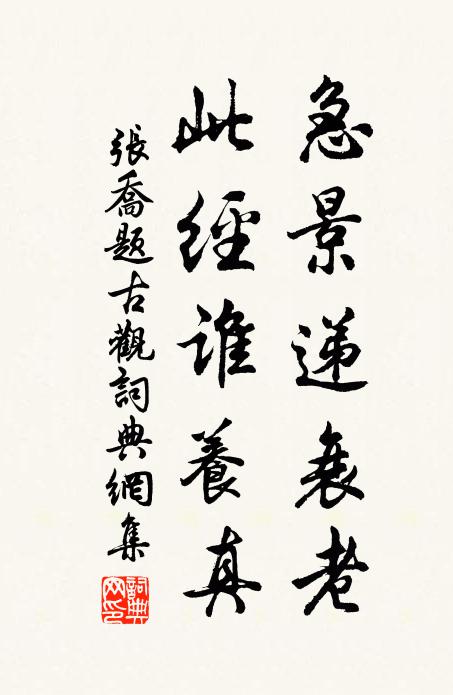 急景遞衰老
此經誰養真
張喬題古觀詞典網集
詞典網印